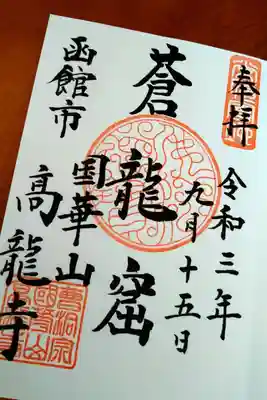 奉拝
令和三年
九月十五日
蒼龍窟
函館市
国華山
高龍寺